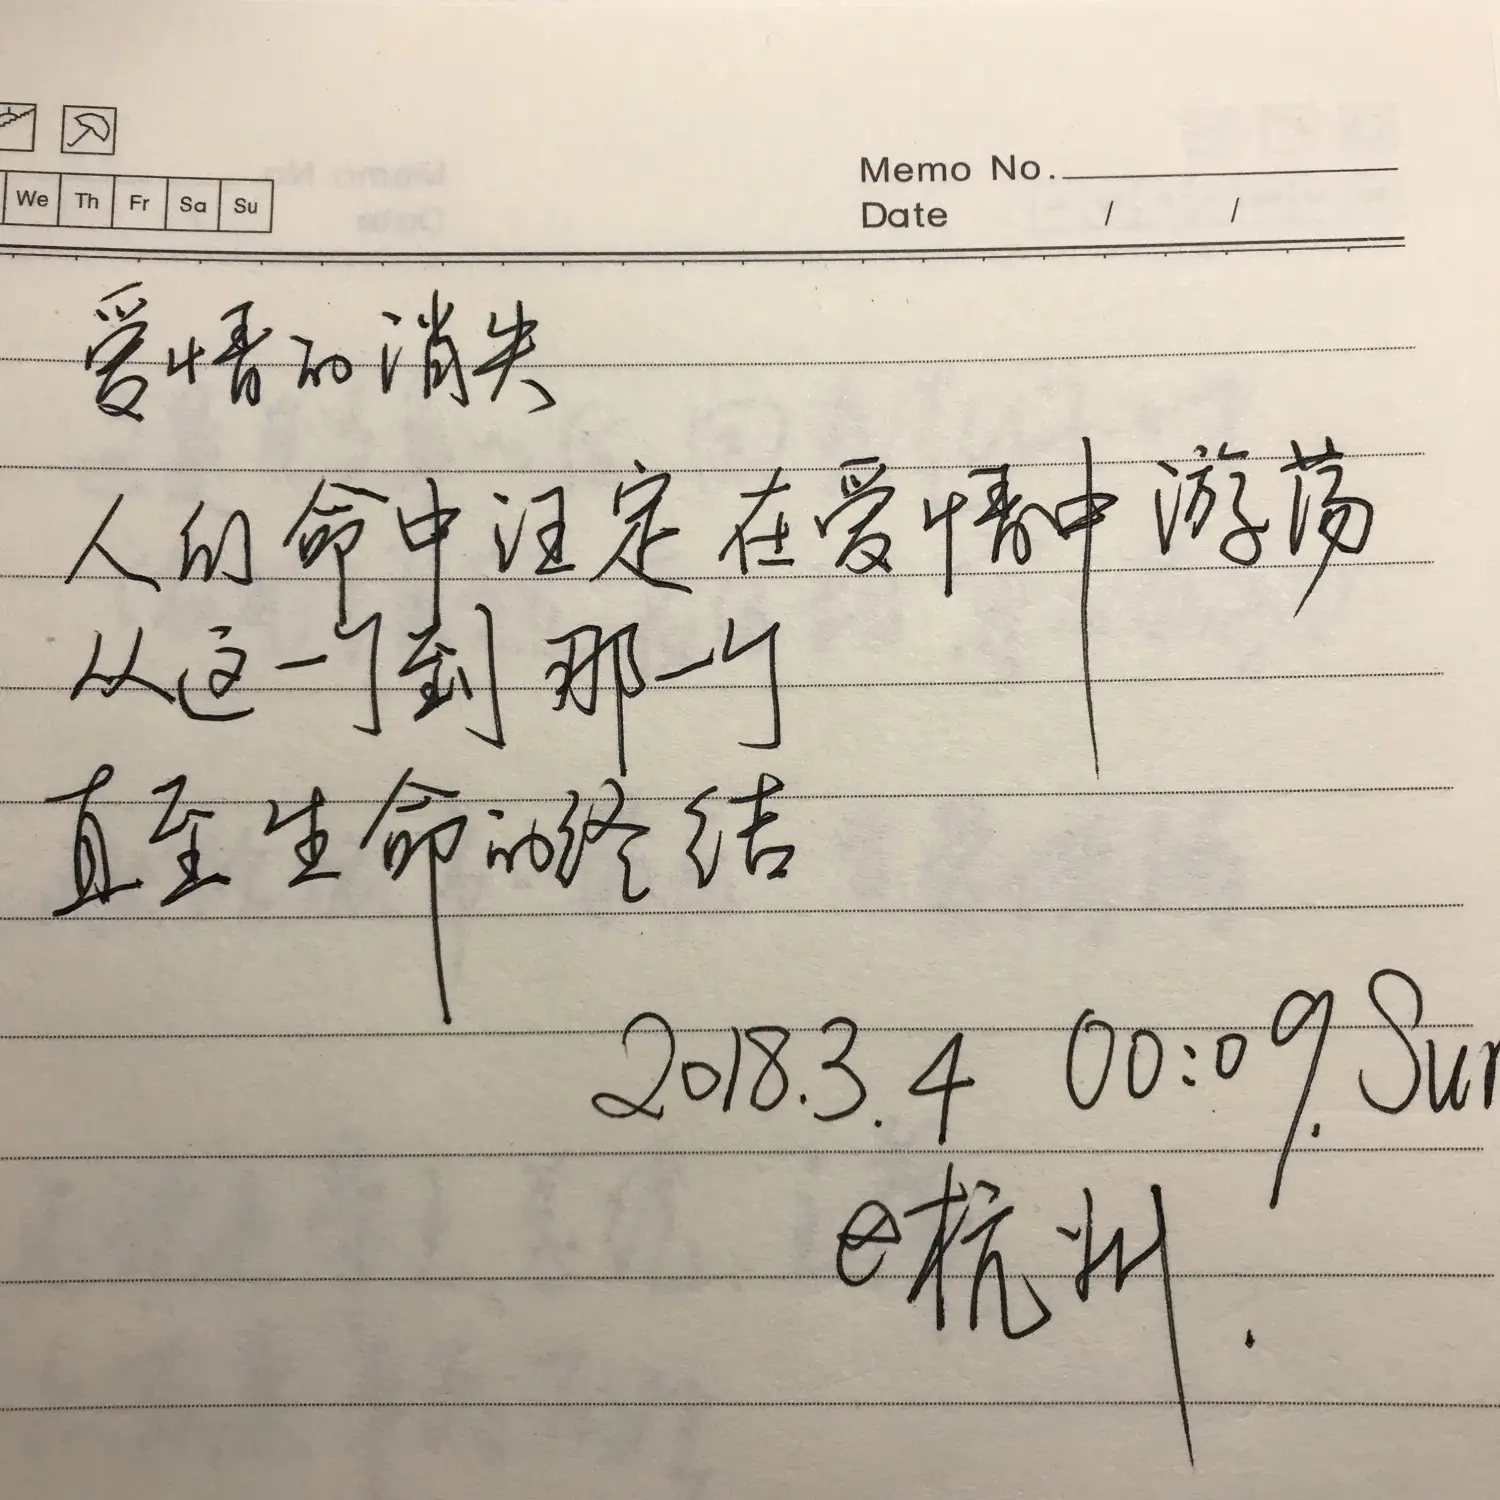 We Th Fr Sa Su
Memo No.
Date / /
爱情的消失
人们命中注定在爱情中游荡
从这一个到那一个
直至生命的终结
2018.3.4 00:09. Sun
@杭州.